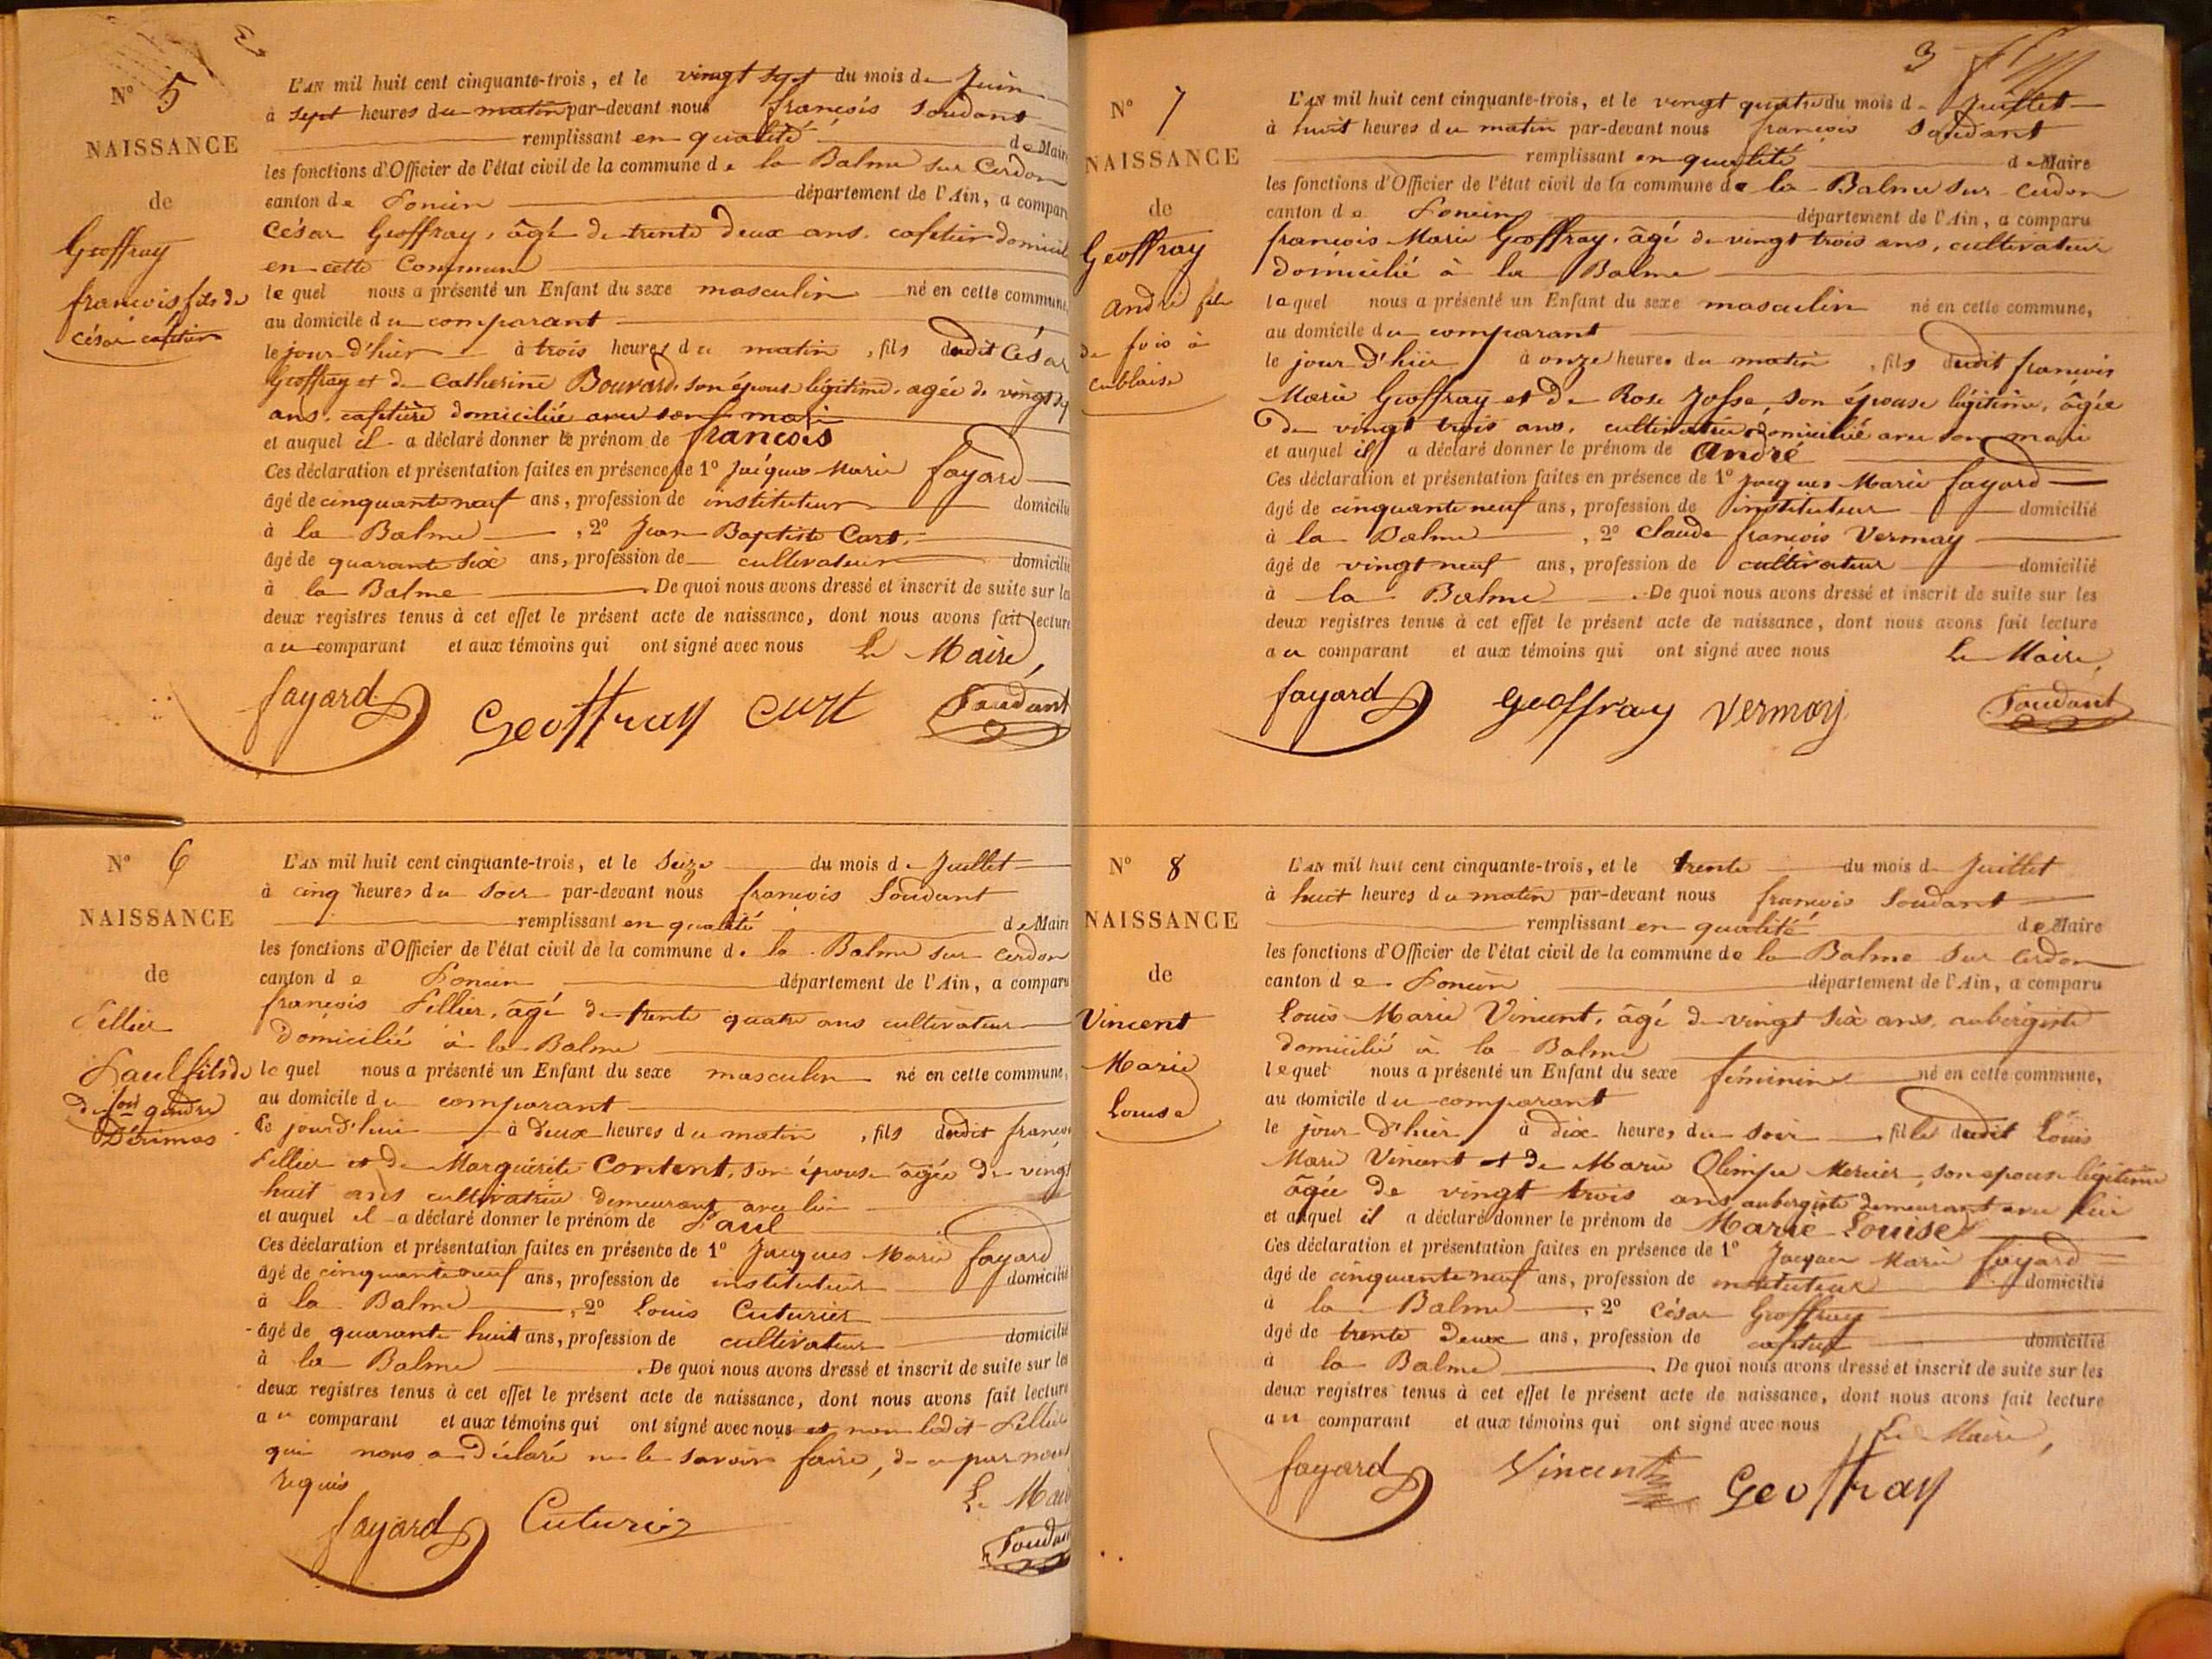 N° 5
NAISSANCE
de
Geoffray
françois fils de
César cafetier
L'AN mil huit cent cinquante-trois, et le vingt sept du mois de Juin
à sept heures du matin par-devant nous françois Soudant
remplissant en qualité de Maire
les fonctions d'Officier de l'état civil de la commune de la Balme sur Cerdon
canton de Poncin département de l'Ain, a comparu
César Geoffray, âgé de trente deux ans, cafetier domicil
en cette Commune
lequel nous a présenté un Enfant du sexe masculin né en cette commune,
au domicile du comparant
le jour d'hier à trois heures du matin, fils dudit César
Geoffray et de Catherine Bouvard, son épouse légitime, agée de vingt
ans, cafetière domiciliée avec son mari
et auquel il a déclaré donner le prénom de françois
Ces déclaration et présentation faites en présence de 1° Jacques Marie fayard
âgé de cinquante neuf ans, profession de instituteur domicilié
à la Balme, 2° Jean Baptiste Curt,
âgé de quarante six ans, profession de cultivateur domicilié
à la Balme. De quoi nous avons dressé et inscrit de suite sur les
deux registres tenus à cet effet le présent acte de naissance, dont nous avons fait lecture
au comparant et aux témoins qui ont signé avec nous Le Maire,
fayard Geoffray Curt Soudant
N° 6
NAISSANCE
de
Pellier
Paul fils de
L'AN mil huit cent cinquante-trois, et le Seize du mois de Juillet
à cinq heures du soir par-devant nous françois Soudant
remplissant en qualité de Maire
les fonctions d'Officier de l'état civil de la commune de la Balme sur Cerdon
canton de Poncin département de l'Ain, a comparu
françois Pellier, âgé de trente quatre ans cultivateur
domicilié à la Balme
lequel nous a présenté un Enfant du sexe masculin né en cette commune,
au domicile du comparant
ce jourd'hui à deux heures du matin, fils dudit françois
Pellier et de Marguerite Content, son épouse âgée de vingt
huit ans cultivatrice demeurant avec lui
et auquel il a déclaré donner le prénom de Paul
Ces déclaration et présentation faites en présence de 1° Jacques Marie fayard
âgé de cinquante neuf ans, profession de instituteur domicilié
à la Balme, 2° Louis Cuturier
âgé de quarante huit ans, profession de cultivateur domicilié
à la Balme. De quoi nous avons dressé et inscrit de suite sur les
deux registres tenus à cet effet le présent acte de naissance, dont nous avons fait lecture
au comparant et aux témoins qui ont signé avec nous et non ledit Pellier
qui nous a déclaré ne le savoir faire, de ce par nous
requis Le Maire
fayard Cuturier Soudant
3
N° 7
NAISSANCE
de
Geoffray
André fils
L'AN mil huit cent cinquante-trois, et le vingt quatre du mois de Juillet
à huit heures du matin par-devant nous françois Soudant
remplissant en qualité de Maire
les fonctions d'Officier de l'état civil de la commune de la Balme sur Cerdon
canton de Poncin département de l'Ain, a comparu
françois Marie Geoffray, âgé de vingt trois ans, cultivateur
domicilié à la Balme
lequel nous a présenté un Enfant du sexe masculin né en cette commune,
au domicile du comparant
le jour d'hier à onze heures du matin, fils dudit françois
Marie Geoffray et de Rose Josse, son épouse légitime, âgée
de vingt trois ans, cultivatrice domiciliée avec son mari
et auquel il a déclaré donner le prénom de André
Ces déclaration et présentation faites en présence de 1° Jacques Marie fayard
âgé de cinquante neuf ans, profession de instituteur domicilié
à la Balme, 2° Claude françois Vermay
âgé de vingt neuf ans, profession de cultivateur domicilié
à la Balme. De quoi nous avons dressé et inscrit de suite sur les
deux registres tenus à cet effet le présent acte de naissance, dont nous avons fait lecture
au comparant et aux témoins qui ont signé avec nous Le Maire,
fayard geoffray Vermay Soudant
N° 8
NAISSANCE
de
Vincent
Marie
Louise
L'AN mil huit cent cinquante-trois, et le trente du mois de Juillet
à huit heures du matin par-devant nous françois Soudant
remplissant en qualité de Maire
les fonctions d'Officier de l'état civil de la commune de la Balme sur Cerdon
canton de Poncin département de l'Ain, a comparu
Louis Marie Vincent, âgé de vingt six ans, aubergiste
domicilié à la Balme
lequel nous a présenté un Enfant du sexe féminin né en cette commune,
au domicile du comparant
le jour d'hier à dix heures du soir, fille dudit Louis
Marie Vincent et de Marie Olimpe Mercier, son épouse légitime
âgée de vingt trois ans aubergiste demeurant avec lui
et auquel il a déclaré donner le prénom de Marie-Louise
Ces déclaration et présentation faites en présence de 1° Jacques Marie fayard
âgé de cinquante neuf ans, profession de instituteur domicilié
à la Balme, 2° César Geoffray
âgé de trente deux ans, profession de cafetier domicilié
à la Balme. De quoi nous avons dressé et inscrit de suite sur les
deux registres tenus à cet effet le présent acte de naissance, dont nous avons fait lecture
au comparant et aux témoins qui ont signé avec nous Le Maire,
fayard Vincent Geoffray